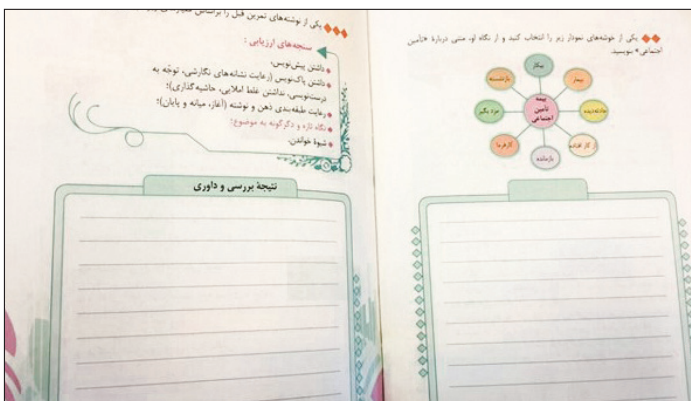 یکی از خوشه‌های نمودار زیر را انتخاب کنید و از نگاه او، متنی دربارهٔ «تأمین
اجتماعی» بنویسید.
بیکار
بیمار
حادثه‌دیده
کار افتاده
بازمانده
کارفرما
مزد بگیر
بازنشسته
بیمه
تأمین
اجتماعی
یکی از نوشته‌های تمرین قبل را براساس
سنجه‌های ارزیابی:
داشتن پیش‌نویس؛
داشتن پاک‌نویس (رعایت نشانه‌های نگارشی، توجّه به
درست‌نویسی، نداشتن غلط املایی، حاشیه‌گذاری)؛
رعایت طبقه‌بندی ذهن و نوشته (آغاز، میانه و پایان)؛
نگاه تازه و دگرگونه به موضوع؛
شیوهٔ خواندن.
نتیجهٔ بررسی و داوری